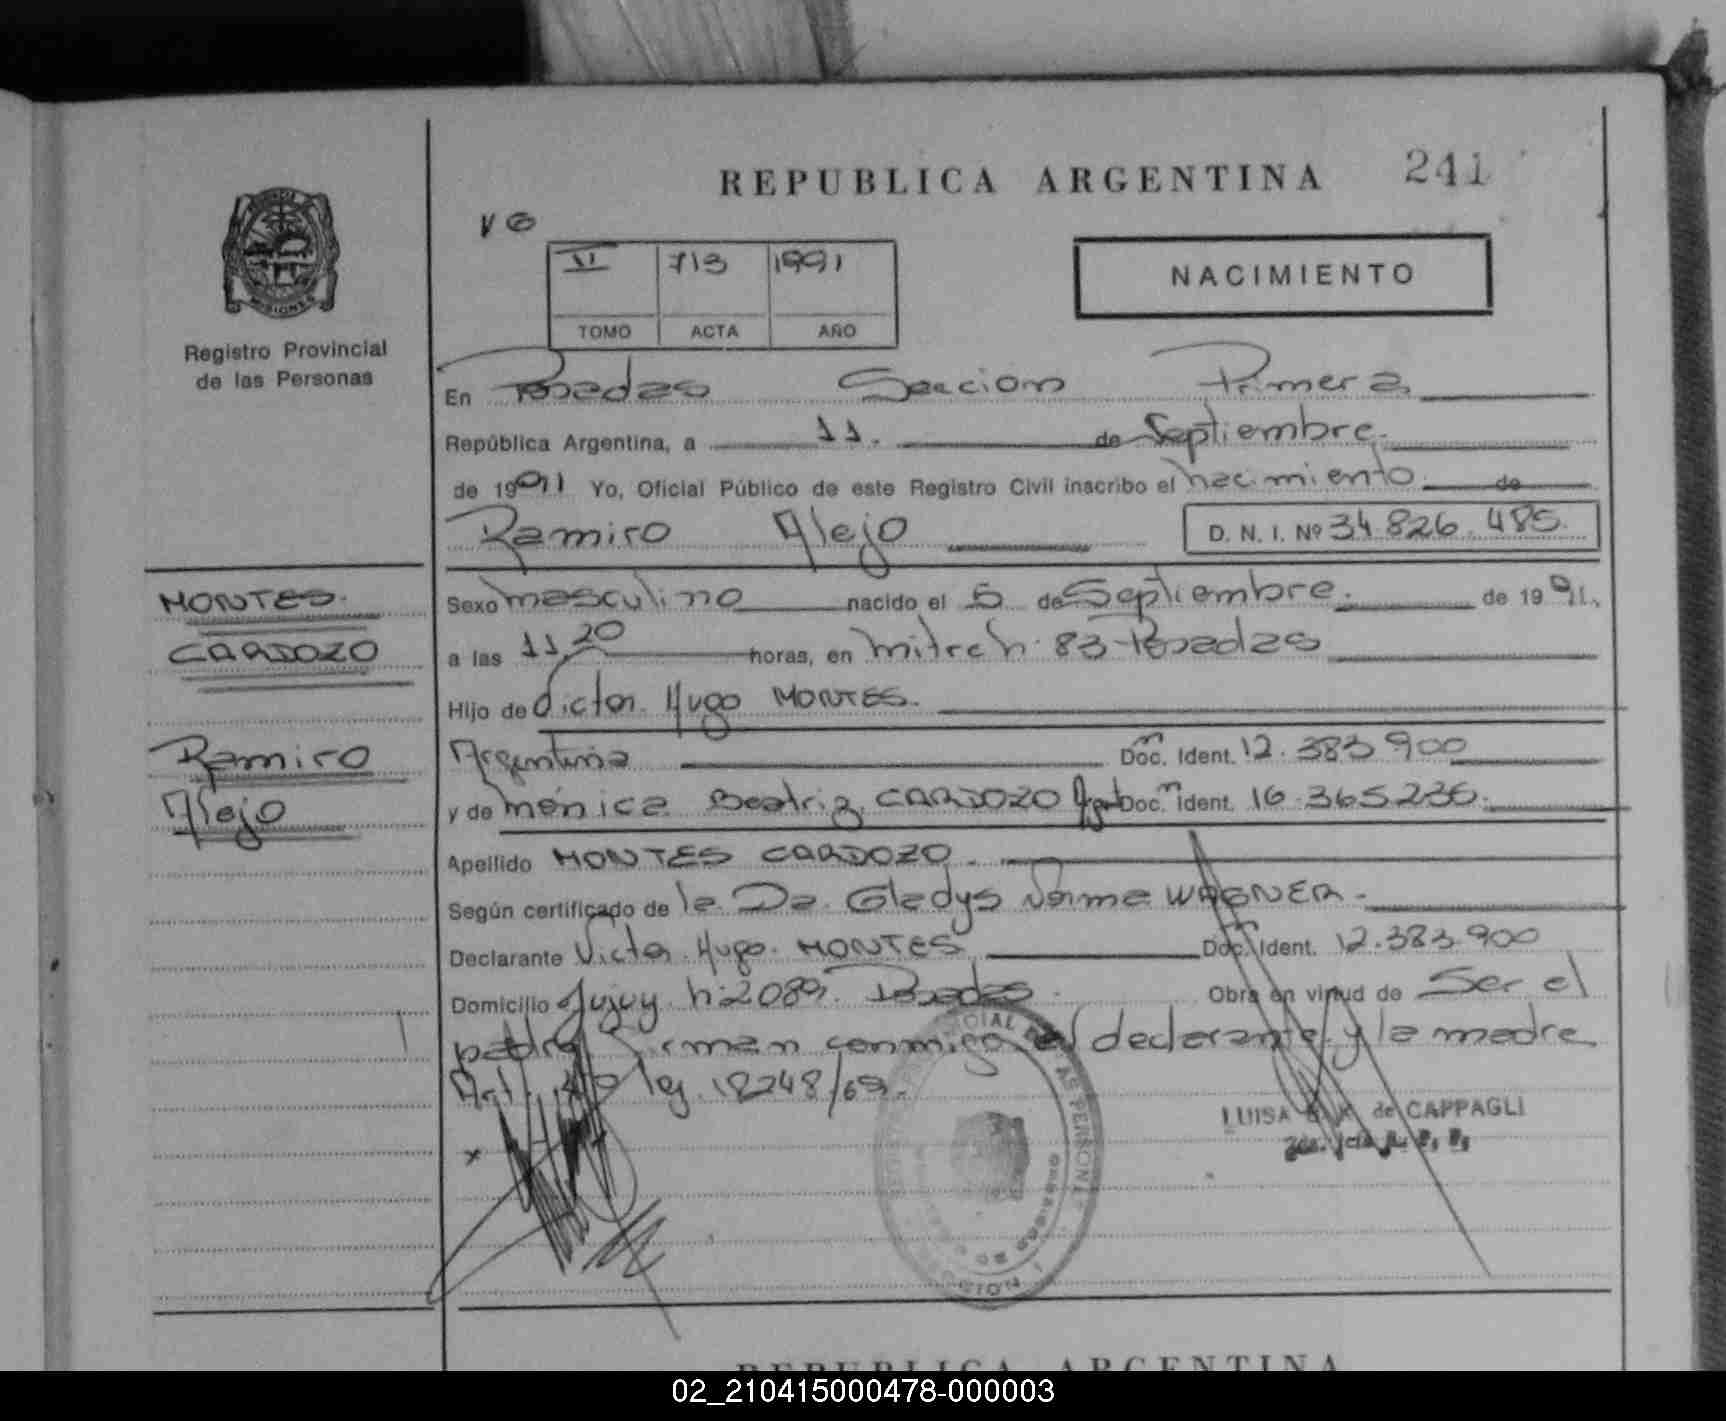 REPUBLICA ARGENTINA 241
VG
VI 713 1991
TOMO ACTA AÑO
NACIMIENTO
MISIONES
Registro Provincial
de las Personas
En Posadas Seccion Primera
República Argentina, a 11. de Septiembre.
de 1991 Yo, Oficial Público de este Registro Civil inscribo el nacimiento de
Ramiro Alejo D. N. I. Nº 34.826.485.
MONTES.
CARDOZO
Ramiro
Alejo
Sexo masculino nacido el 5 de Septiembre. de 1991.
a las 11 20 horas, en mitre n. 83 Posadas
Hijo de Victor Hugo MONTES.
Argentina Doc. Ident. 12.383.900
y de mónica Beatriz CARDOZO Arg Doc. Ident. 16.365.236.
Apellido MONTES CARDOZO.
Según certificado de la Da. Gladys Norma WAGNER.
Declarante Victor Hugo MONTES Doc. Ident. 12.383.900
Domicilio Jujuy n: 2089. Posadas. Obra en virtud de Ser el
padre Firman conmigo el declarante y la madre
Art. ley 18248/69.
LUISA de CAPPAGLI
x
REPUBLICA ARGENTINA
02_210415000478-000003